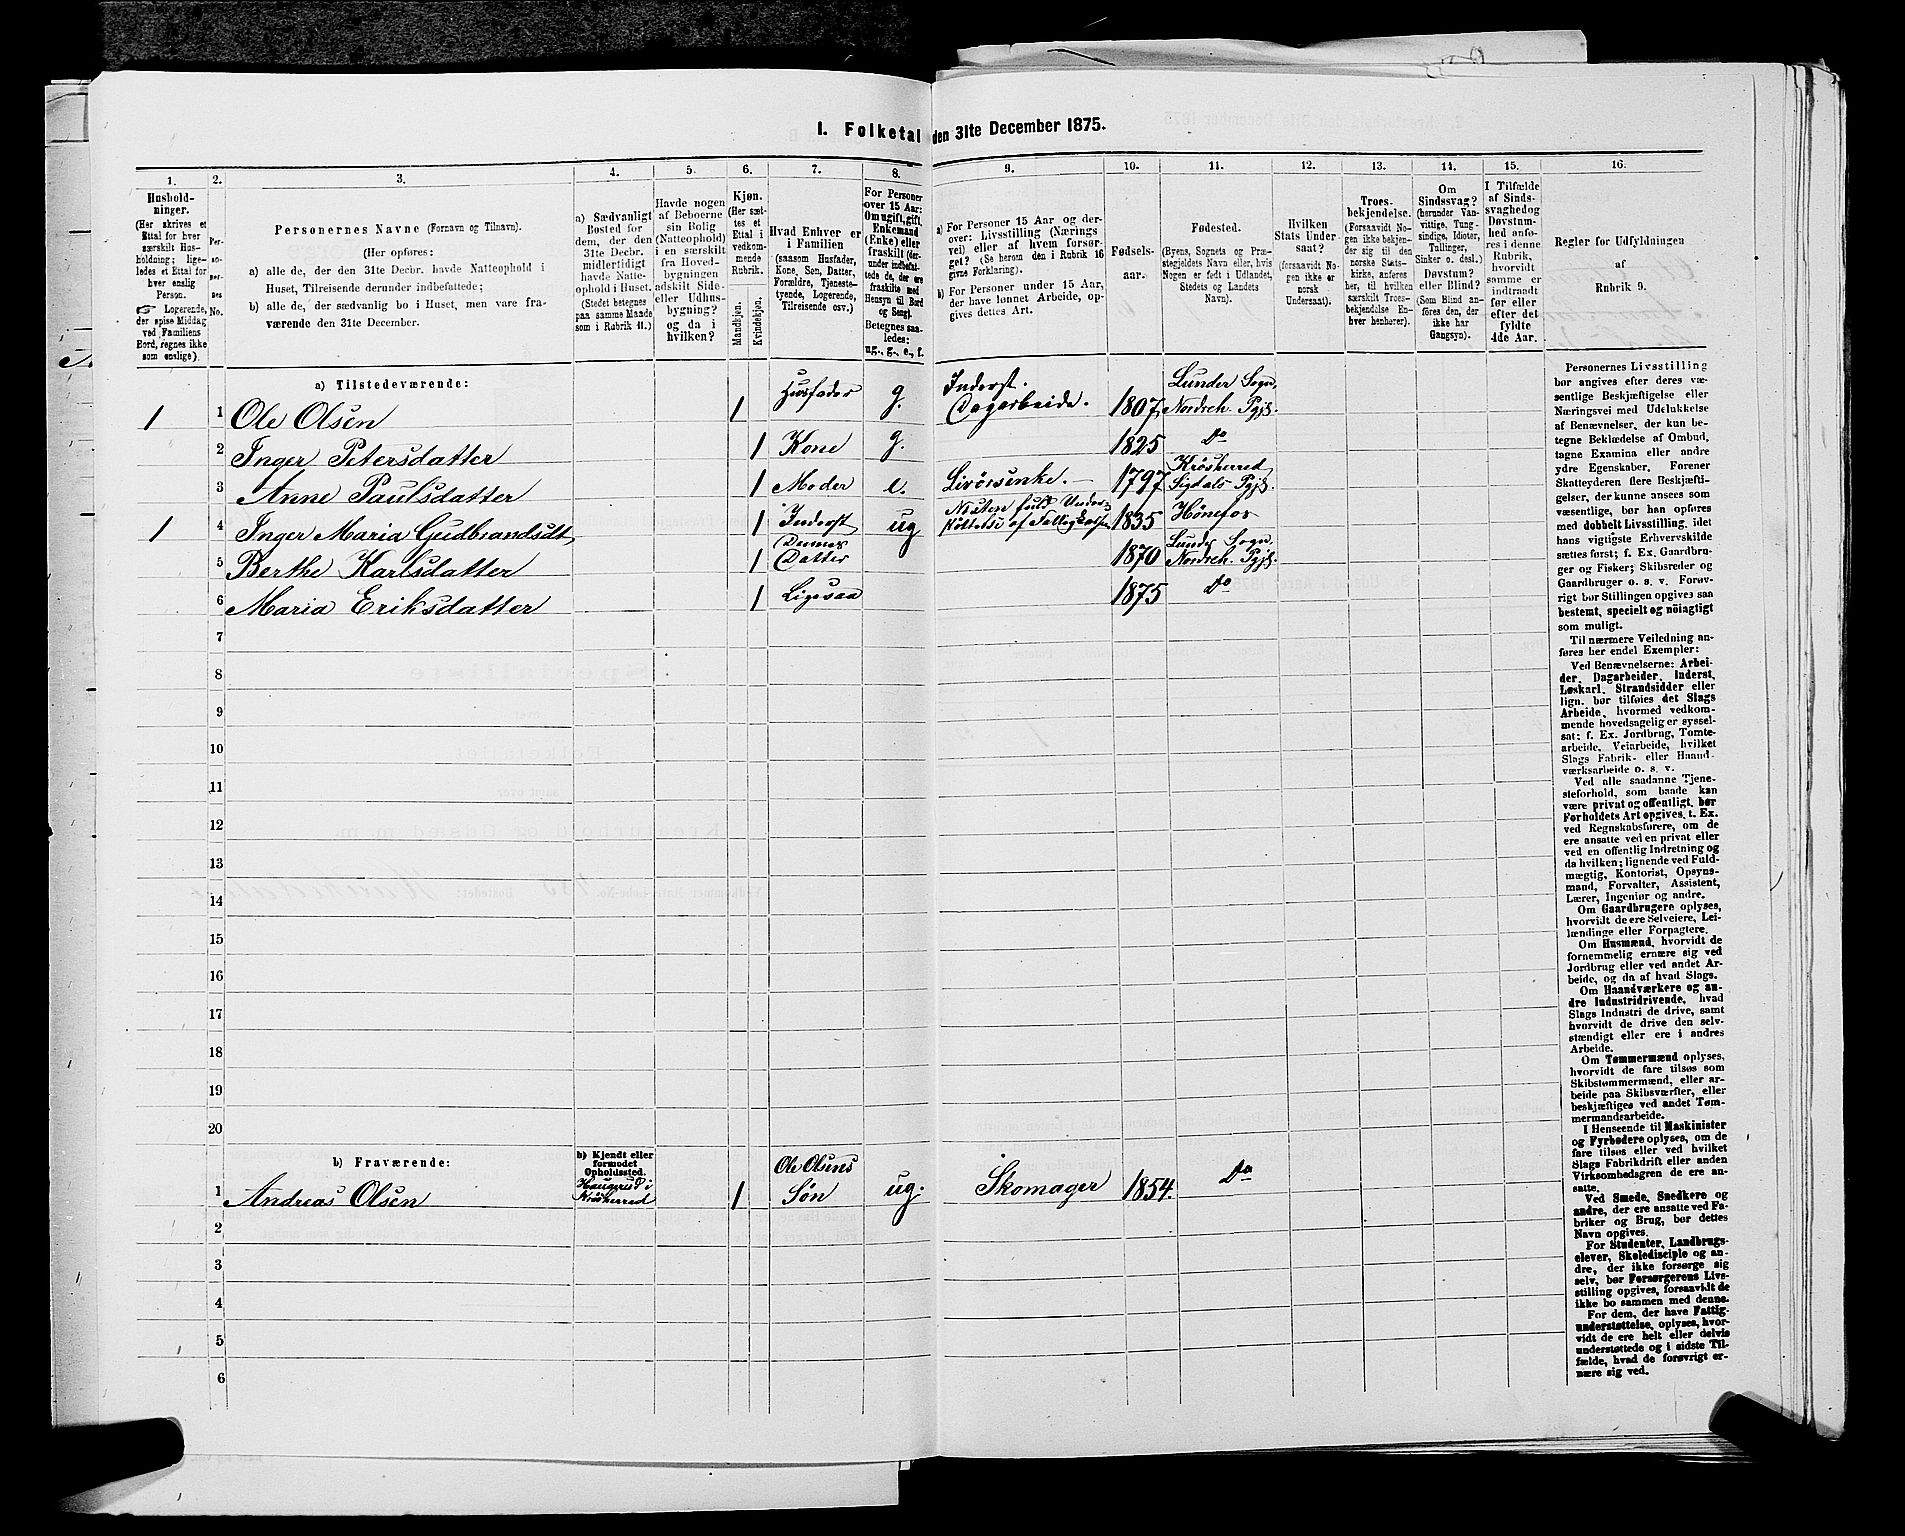 I. Folketal den 31te December 1875.
1. 2. 3. 4. 5. 6. 7. 8. 9. 10. 11. 12. 13. 14. 15. 16.
Hushold-
ninger.
(Her skrives et
Ettal for hver
særskilt Hus-
holdning; lige-
ledes et Ettal for
hver enslig
Person.
☞ Logerende,
der spise Middag
ved Familiens
Bord, regnes ikke
som enslige).
Per-
so-
ner-
nes
No.
Personernes Navne (Fornavn og Tilnavn).
(Her opføres:
a) alle de, der den 31te Decbr. havde Natteophold i
Huset, Tilreisende derunder indbefattede;
b) alle de, der sædvanlig bo i Huset, men vare fra-
værende den 31te December.
a) Sædvanligt
Bosted for
dem, der den
31te Decbr.
midlertidigt
havde Natte-
ophold i Huset.
(Stedet betegnes
paa samme Maade
som i Rubrik 11.)
Havde nogen
af Beboerne
sin Bolig
(Natteophold)
i en særskilt
fra Hoved-
bygningen
adskilt Side-
eller Udhus-
bygning?
og da i
hvilken?
Kjøn.
(Her sæt-
tes et
Ettal i
vedkom-
mende
Rubrik.
Mandkjøn.
Kvindekjøn.
Hvad Enhver er
i Familien
(saasom Husfader,
Kone, Søn, Datter,
Forældre, Tjeneste-
tyende, Logerende,
Tilreisende osv.)
For Personer
over 15 Aar:
Om ugift, gift,
Enkemand
(Enke) eller
fraskilt (der-
under indbefat-
tede de, der ere
fraskilte med
Hensyn til Bord
og Seng).
Betegnes saa-
ledes:
ug., g., e., f.
a) For Personer 15 Aar og der-
over: Livsstilling (Nærings
vei) eller af hvem forsør-
get? (Se herom den i Rubrik 16
givne Forklaring).
b) For Personer under 15 Aar,
der have lønnet Arbeide, op-
gives dettes Art.
Fødsels-
aar.
Fødested.
(Byens, Sognets og Præ-
stegjeldets Navn eller, hvis
Nogen er født i Udlandet,
Stedets og Landets
Navn).
Hvilken
Stats Under
saat?
(forsaavidt No-
gen ikke er
norsk
Undersaat).
Troes-
bekjendelse.
(Forsaavidt No-
gen ikke bekjen-
der sig til den
norske Stats-
kirke, anføres
her, til hvilken
særskilt Troes-
bekjendelse En-
hver henhører).
Om
Sindssvag?
(herunder Van-
vittige, Tung-
sindige, Idioter,
Tullinger,
Sinker o. desl.)
Døvstum?
eller Blind?
(Som Blind an-
føres den, der
ikke har
Gangsyn).
I Tilfælde
af Sinds-
svaghed og
Døvstum-
hed, anfø-
res i denne
Rubrik,
hvorvidt
samme er
indtraadt
før eller
efter det
fyldte
4de Aar.
Regler for Udfyldningen
af
Rubrik 9.
a) Tilstedeværende:
1 1 Ole Olsen 1 Husfader g. Inderst. Dagarbeide. 1807 Lunder Sogn, Nordreh. Pgjd.
2 Inger Petersdatter 1 Kone g. 1825 Do
3 Anne Paulsdatter 1 Moder e. Livörsenke. — 1797 Krösherred Sigdals Pgjd.
1 4 Inger Maria Gudbrandsdt 1 Inderst ug af Fattigkassen 1835 Hönefos
5 Berthe Karlsdatter 1 Dennes Datter 1870 Lunder Sogn, Nordreh. Pgjd.
6 Maria Eriksdatter 1 Ligesaa 1875 Do
7
8
9
10
11
12
13
14
15
16
17
18
19
20
b) Fraværende:
b) Kjendt eller
formodet
Opholdssted.
1 Andreas Olsen Haugerud i Krösherred 1 Ole Olsens Søn ug. Skomager 1854. Do
2
3
4
5
6
Personernes Livsstilling
bør angives efter deres væ-
sentlige Beskjæftigelse eller
Næringsvei med Udelukkelse
af Benævnelser, der kun be-
tegne Beklædelse af Ombud,
tagne Examina eller andre
ydre Egenskaber. Forener
Skatteyderen flere Beskjæfti-
gelser, der kunne ansees som
væsentlige, bør han opføres
med dobbelt Livsstilling, idet
hans vigtigste Erhvervskilde
sættes først; f. Ex. Gaardbru-
ger og Fisker; Skibsreder og
Gaardbruger o. s. v. Forøv-
rigt bør Stillingen opgives saa
bestemt, specielt og nöiagtigt
som muligt.
Til nærmere Veiledning an-
føres her endel Exempler:
Ved Benævnelserne: Arbei-
der, Dagarbeider, Inderst,
Løskarl, Strandsidder eller
lign. bør tilføies det Slags
Arbeide, hvormed vedkom-
mende hovedsagelig er syssel-
sat; f. Ex. Jordbrug, Tomte-
arbeide, Veiarbeide, hvilket
Slags Fabrik- eller Haand-
værksarbeide o. s. v.
Ved alle saadanne Tjene-
steforhold, som baade kan
være privat og offentligt, bør
Forholdets Art opgives, t. Ex.
ved Regnskabsførere, om de
ere ansatte ved en privat eller
ved en offentlig Indretning og
da hvilken; lignende ved Fuld-
mægtig, Kontorist, Opsyns-
mand, Forvalter, Assistent,
Lærer, Ingeniør og andre.
Om Gaardbrugere oplyses,
hvorvidt de ere Selveiere, Lei-
lændinge eller Forpagtere.
Om Husmænd, hvorvidt de
fornemmelig ernære sig ved
Jordbrug eller ved andet Ar-
beide, og da af hvad Slags.
Om Haandværkere og an-
dre Industridrivende, hvad
Slags Industri de drive, samt
hvorvidt de drive den selv-
stændigt eller ere i andres
Arbeide.
Om Tømmermænd oplyses,
hvorvidt de fare tilsøs som
Skibstømmermænd, eller ar-
beide paa Skibsværfter, eller
beskjæftiges ved andet Tøm-
mermandsarbeide.
I Henseende til Maskinister
og Fyrbødere oplyses, om de
fare tilsøs eller ved hvilket
Slags Fabrikdrift eller anden
Virksomhedsgren de ere an-
satte.
Ved Smede, Snedkere og
andre, der ere ansatte ved Fa-
briker og Brug, bør dettes
Navn opgives.
For Studenter, Landbrugs-
elever, Skoledisciple og an-
dre, der ikke forsørge sig
selv, bør Forsørgerens Livs-
stilling opgives, forsaavidt de
ikke bo sammen med denne.
For dem, der have Fattig-
understøttelse, oplyses, hvor-
vidt de ere helt eller delvis
understøttede og i sidste Til-
fælde, hvad de forøvrigt er-
nære sig ved.